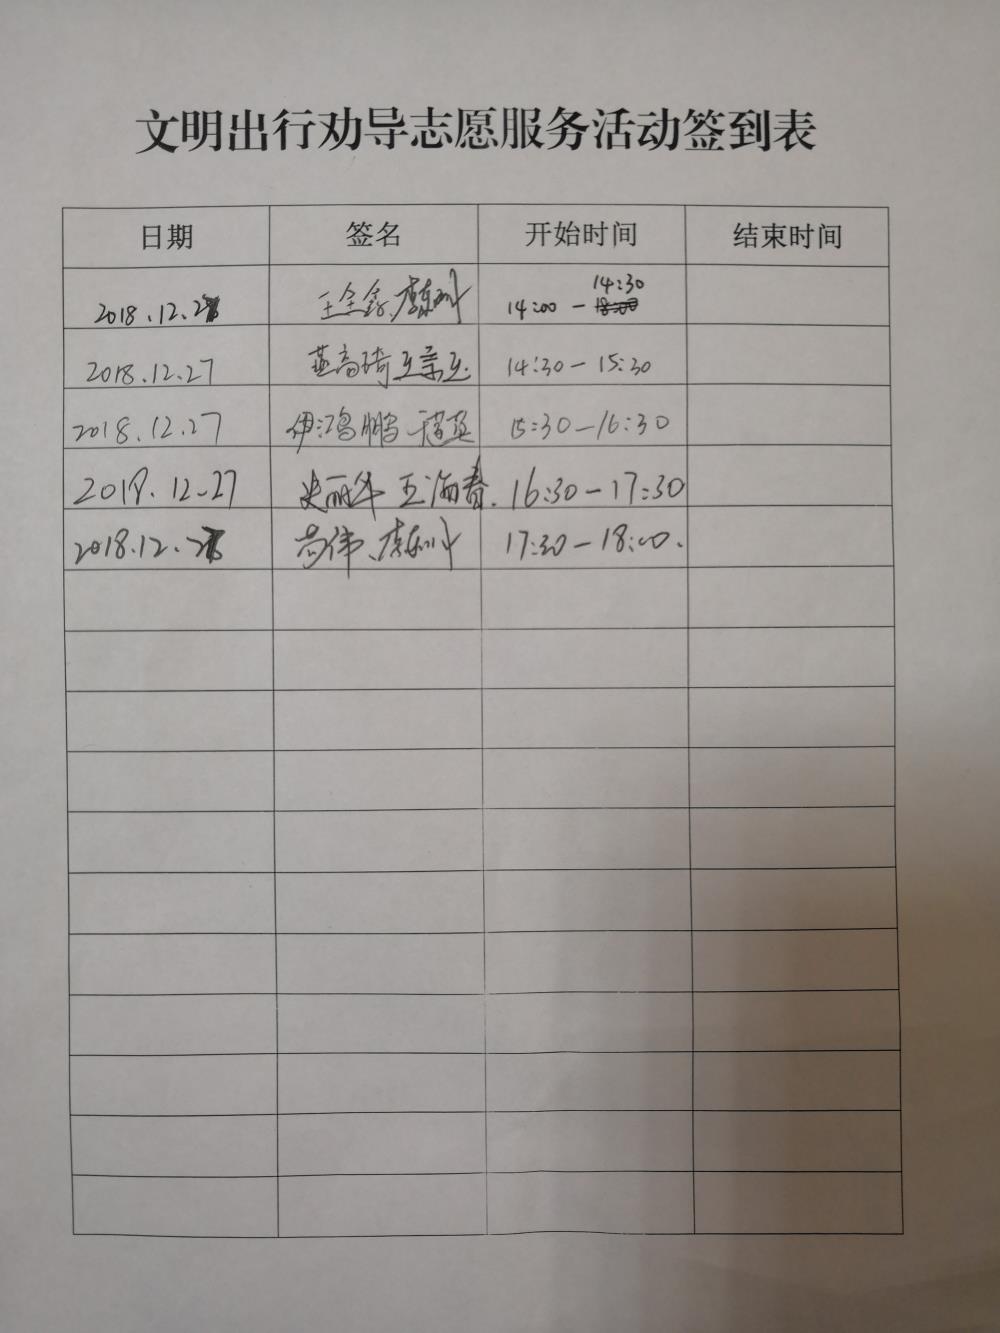 文明出行劝导志愿服务活动签到表
日期 签名 开始时间 结束时间
2018.12.27 王全鑫 14:00-14:30
2018.12.27 燕高琦 14:30-15:30
2018.12.27 伊鸿鹏 15:30-16:30
2018.12.27 史丽华 王海春. 16:30-17:30
2018.12.27 尚伟、 17:30-18:00.